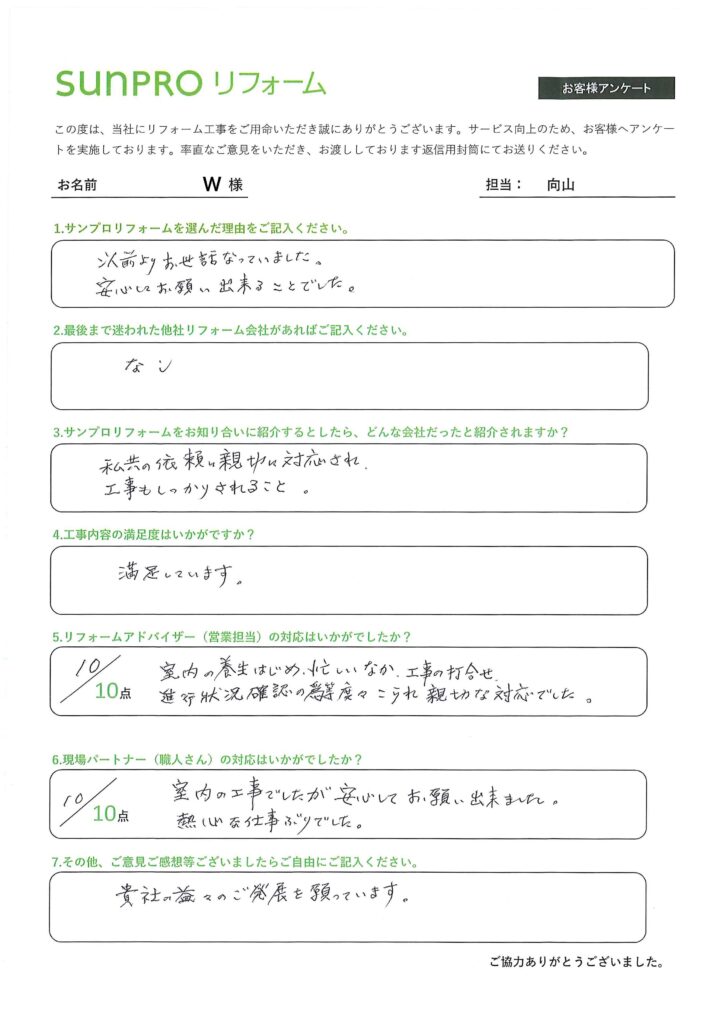 SUNPRO リフォーム
お客様アンケート
この度は、当社にリフォーム工事をご用命いただき誠にありがとうございます。サービス向上のため、お客様へアンケー
トを実施しております。率直なご意見をいただき、お渡ししております返信用封筒にてお送りください。
お名前 W 様 担当： 向山
1.サンプロリフォームを選んだ理由をご記入ください。
以前よりお世話なっていました。
安心してお願い出来ることでした。
2.最後まで迷われた他社リフォーム会社があればご記入ください。
なし
3.サンプロリフォームをお知り合いに紹介するとしたら、どんな会社だったと紹介されますか？
私共の依頼に親切に対応され、
工事もしっかりされること。
4.工事内容の満足度はいかがですか？
満足しています。
5.リフォームアドバイザー（営業担当）の対応はいかがでしたか？
10/10点
室内の養生はじめ、忙しいなか、工事の打合せ、
進行状況確認の為等度々こられ親切な対応でした。
6.現場パートナー（職人さん）の対応はいかがでしたか？
10/10点
室内の工事でしたが安心してお願い出来ました。
熱心な仕事ぶりでした。
7.その他、ご意見ご感想等ございましたらご自由にご記入ください。
貴社の益々のご発展を願っています。
ご協力ありがとうございました。